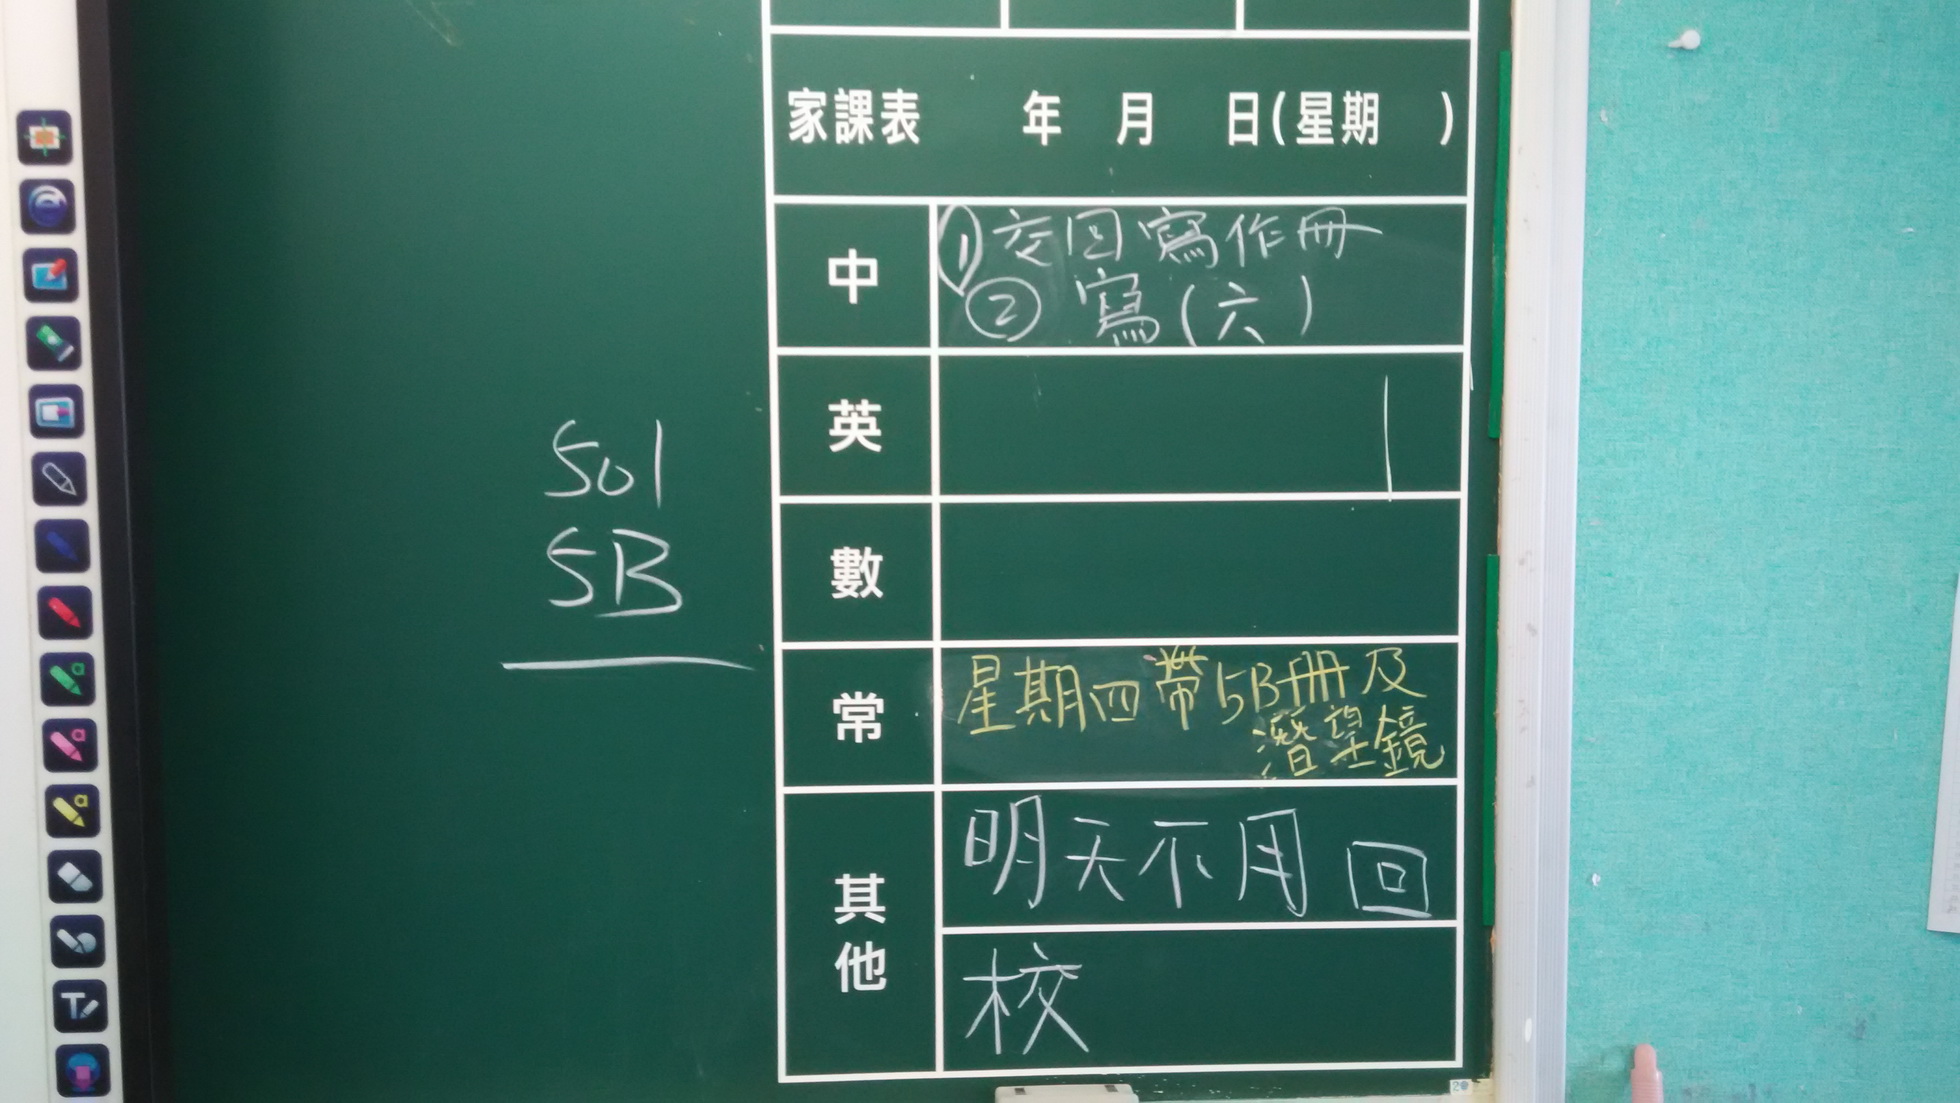 家課表 年 月 日(星期 )
中
①交回寫作冊
②寫(六)
英
數
常
星期四帶5B冊及
潛望鏡
其他
明天不用回
校
501
5B